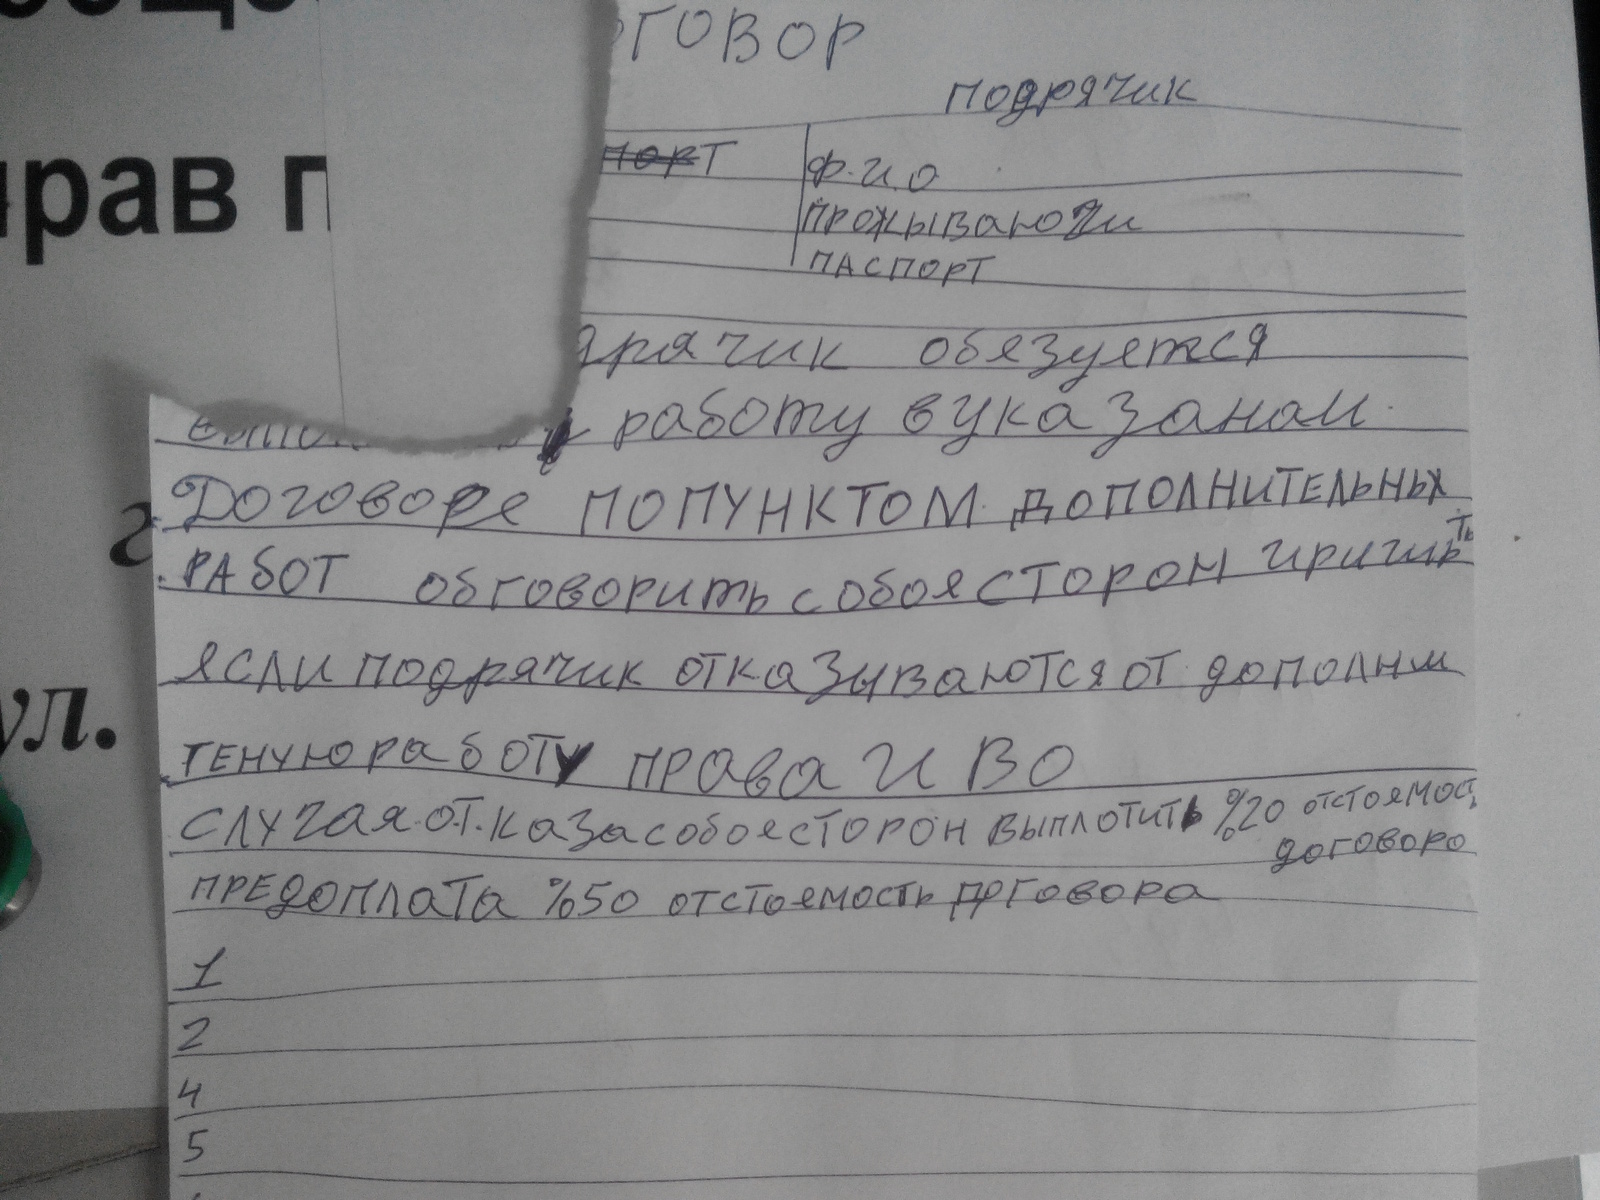 ОГОВОР
ПОДРЯЧИК
ПОРТ
Ф.И.О
ПРОЖЫВАЮЧИ
ПАСПОРТ
дрячик обязуется
работу в указанам
Договоре ПОПУНКТОМ ДОПОЛНИТЕЛЬНЫХ
РАБОТ обговорить с обоя СТОРОН
ЯСЛИ ПОДРЯЧИК ОТКАЗЫВАЮТСЯ ОТ ДОПОЛНИ
ТЕНУЮ РАБОТУ ПРАВА И ВО
СЛУЧАЯ ОТ.КАЗА С ОБОЕ СТОРОН ВЫПЛОТИТЬ %20 ОТСТОЯМОСТ
ДОГОВОРО
ПРЕДОПЛАТА %50 ОТСТОЯМОСТЬ ДОГОВОРА
1
2
4
5
рав п
г.
ул.